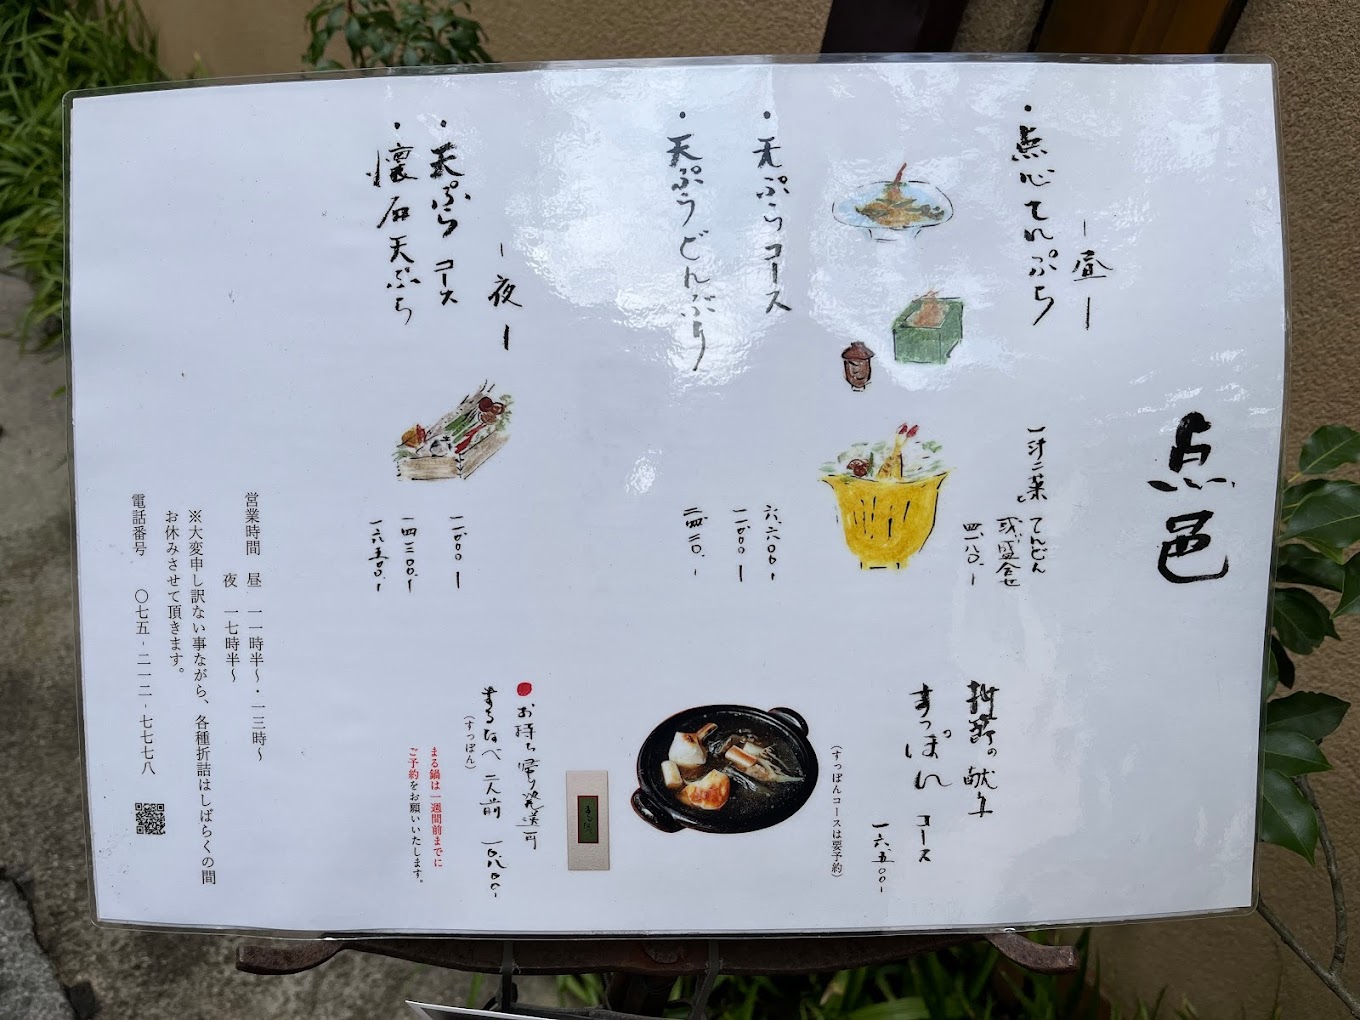 点邑
ー昼ー
・点心てんぷら
一汁二菜
てんどん
或ハ盛合せ
四一八〇ー
・天ぷらコース
六六〇〇ー
一一〇〇〇ー
・天ぷらどんぶり
二四二〇ー
ー夜ー
・天ぷらコース
一一〇〇〇ー
・懐石天ぷら
一四三〇〇ー
一六五〇〇ー
の献立
すっぽん コース
一六五〇〇ー
（すっぽんコースは要予約）
お持ち帰り発送可
まるなべ 二人前
（すっぽん）
まる鍋は一週間前までに
ご予約をお願いいたします。
営業時間 昼 一一時半〜・一三時〜
夜 一七時半〜
※大変申し訳ない事ながら、各種折詰はしばらくの間
お休みさせて頂きます。
電話番号 〇七五-二一二-七七七八